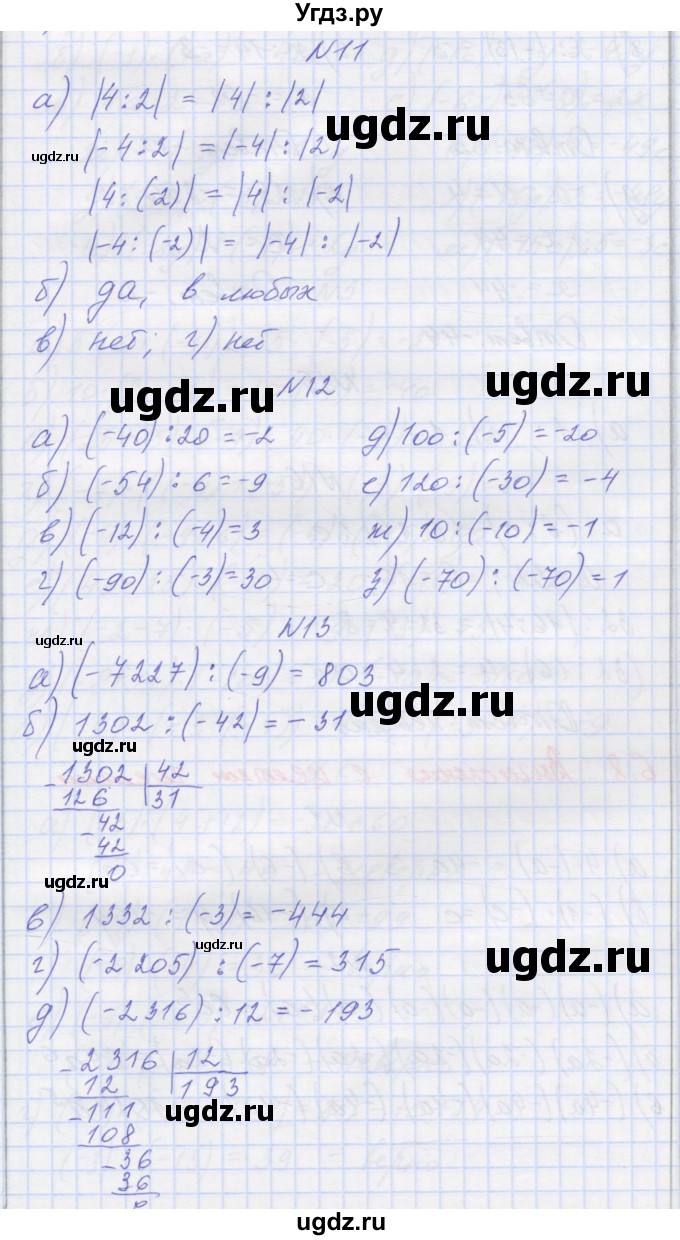 Угдз.ру
N11
а) |4:2| = |4| : |2|
ugdz.ru
ugdz.ru
|-4:2| = |-4| : |2|
|4:(-2)| = |4| : |-2|
|-4:(-2)| = |-4| : |-2|
б) да, в любых
в) нет; г) нет
ugdz.ru
ugdz.ru
N12
а) (-40):20 = -2 д) 100:(-5) = -20
б) (-54) : 6 = -9 е) 120:(-30) = -4
в) (-12) : (-4) = 3 ж) 10:(-10) = -1
г) (-90) : (-3) = 30 з) (-70) : (-70) = 1
N13
ugdz.ru
а) (-7227) : (-9) = 803
ugdz.ru
б) 1302 : (-42) = -31
ugdz.ru
-1302 42
126 31
-42
42
ugdz.ru
0
в) 1332 : (-3) = -444
ugdz.ru
ugdz.ru
г) (-2205) : (-7) = 315
д) (-2316) : 12 = -193
-2316 12
12 193
ugdz.ru
-111
108
-36
36
ugdz.ru
0
ugdz.ru